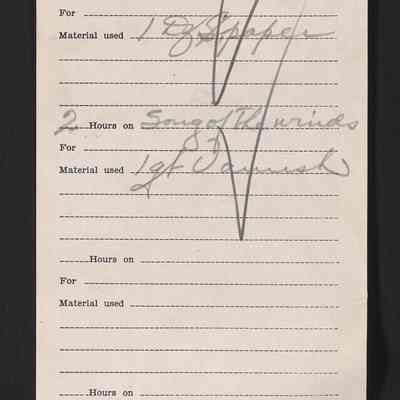 For
Material used 1 Dz S. paper
2 Hours on Song of The winds
For
Material used 1 qt Varnish
Hours on
For
Material used
Hours on